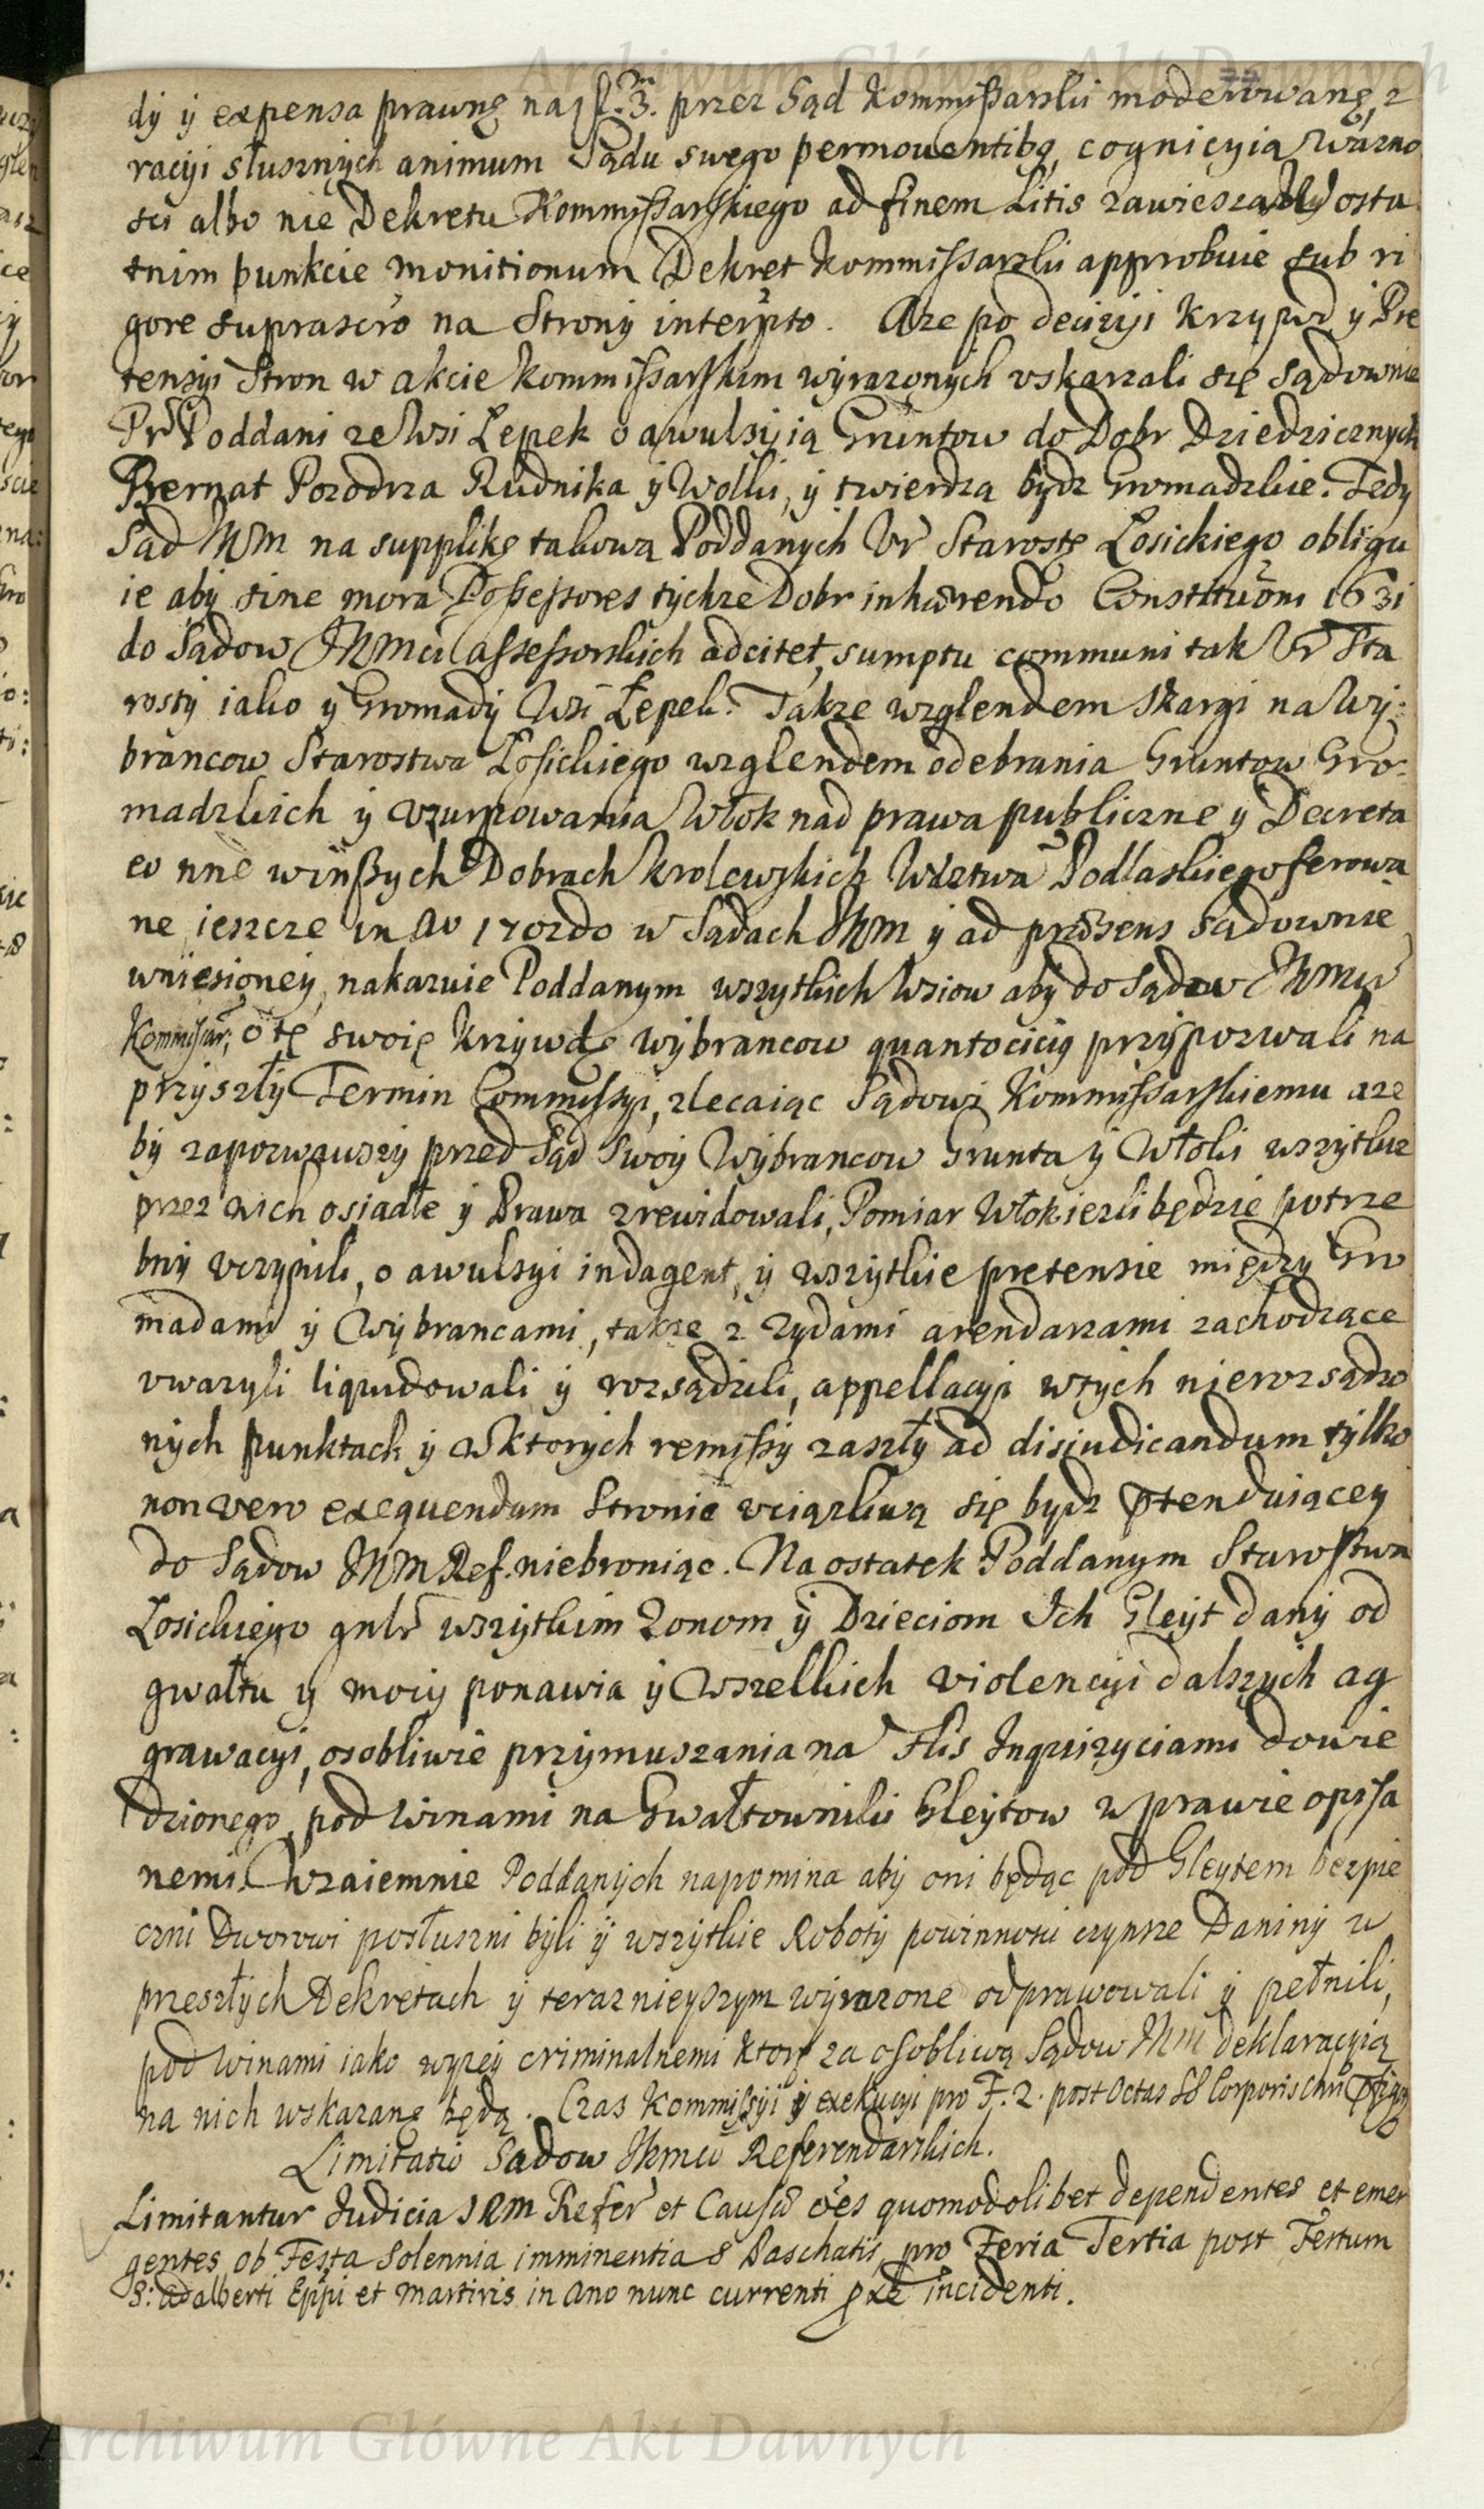 Archiwum Główne Akt Dawnych
dy y expensa prawnę na przez Sąd Kommyssarski moderowanę, z
racyi słusznych animum Sądu swego permouentibą, cognicyią ważno
sci albo nie Dekretu Kommyssarskiego ad finem Litis zawiesza osta
tnim punkcie monitionum Dekret Kommissarski approbuie sub ri
gore suprascro na Strony interpto. Aże po decizyi krzywd y Pre
tensyi Stron w akcie kommissarskim wyrażonych uskarzali się sądownie
Pr Poddani ze Wsi Łepek o awulsyią Gruntow do Dobr Dziedzicznych
Biernat Pozodrza Rudnika y Wolki, y twierdzą bydz Gromadzkie. Tedy
Sąd JKM na supplikę takową Poddanych Ur Starostę Łosickiego obligu
ie aby sine mora Possessores tychze Dobr inhærendo Constituõni 1631
do Sądow JKMci assessorskich adcitet, sumptu communi tak Ur Sta
rosty iako y Gromady Wsi Łepek. Także względem skargi na Wy:
brancow Starostwa Łosickiego wzglendem odebrania Gruntow Gro:
madzkich y vzurpowania Włok nad prawa publiczne y Decreta
eo nne w inszych Dobrach krolewskich Wdztwa Podlaskiego ferowa
ne ieszcze in Ao 1702do w Sądach JKM y ad præsens sądownie
wniesioney, nakazuie Poddanym wszytkich Wsiow aby do Sądow JKMci
Kommissar: o tę swoię krzywdę wybrancow quantocicią przypozwali na
przyszły Termin Commissyi, zlecaiąc Sądowi Kommissarskiemu aże
by zapozwawszy przed Sąd swoy Wybrancow Grunta y Włoki wszytkie
przez nich osiadłe y Prawa zrewidowali, Pomiar Włok iezli będzie potrze
bny uczynili, o awulsyi indagent, y wszytkie pretensie między Gro
madami y Wybrancami, takze z Zydami arendarzami zachodzące
uwazyli liquidowali y rozsądzili, appellacyi w tych nierozsądzo
nych punktach y w ktorych remissy zaszły ad disiudicandum tylko
non vero exequendum Stronie uciązliwą się bydz ptenduiącey
do Sądow JKM Ref. niebroniąc. Na ostatek Poddanym Starostwa
Łosickiego gnlr wszytkim Zonom y Dzieciom Ich Gleyt dany od
gwałtu y mocy ponawia y wszelkich violencyi dalszych ag
grawacyi, osobliwie przymuszania na Flis Inquizyciami dowie
dzionego, pod winami na Gwałtowniki Gleytow w prawie opisa
nemi. Wzaiemnie Poddanych napomina aby oni będąc pod Gleytem bezpie
czni Dworowi posłuszni byli y wszytkie Roboty powinnosci czynsze Daniny w
przeszłych Dekretach y teraznieyszym wyrazone odprawowali y pełnili,
pod winami iako wyzey criminalnemi ktorę za osobliwą Sądow JKM deklaracyią
na nich wskazanę będą. Czas Kommissyi y exekucyi pro F. 2. post Octas SS Corporis Chri
Limitatio Sadow JKmci Referendarskich.
Limitantur Judicia SRM Refer et Causæ oẽs quomodolibet dependentes et emer
gentes ob Festa Solennia imminentia S Paschatis, pro Feria Tertia post Festum
S: Adalberti Eppi et Martiris in Ano nunc currenti pxe incidenti.
Archiwum Główne Akt Dawnych